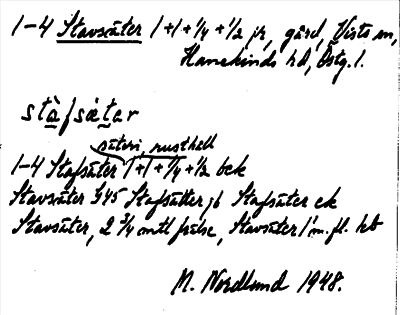 1-4 Stavsäter 1+1+1/4+1/2 jr, gård, Vists sn,
Hanekinds hd, Östg. l.
stàfsætar
säteri, rusthåll
1-4 Stafsäter 1+1+1/4+1/2 bek
Stavsäter G45 Stafsätter jb Stafsäter ek
Stavsäter, 2 3/4 mtl frälse, Stavsäter l:m. fl. hb
N. Nordlund 1948.